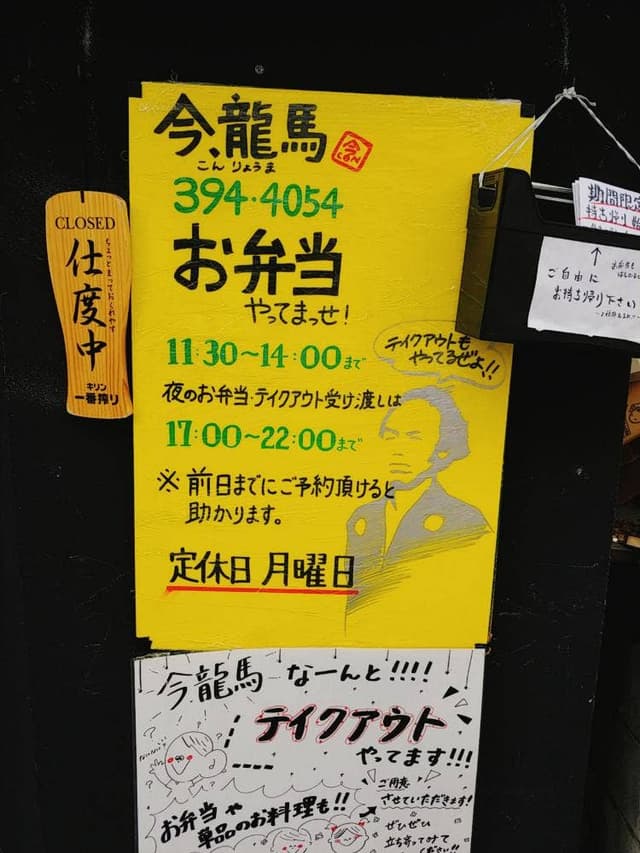 今、龍馬
こん りょうま
今
CON
394-4054
お弁当
やってまっせ!
11:30〜14:00まで
夜のお弁当・テイクアウト受け渡しは
17:00〜22:00まで
※ 前日までにご予約頂けると
助かります。
定休日 月曜日
テイクアウトも
やってるぜよ!!
CLOSED
仕度中
ちょっとまっておくれやす
キリン
一番搾り
期間限定
持ち帰り
↑
ご自由に
お持ち帰り下さい
今龍馬 なーんと!!!!
テイクアウト
やってます!!!
お弁当や
単品のお料理も!!
ご用意
させていただきます!
ぜひぜひ
立ち寄ってみて
ください!!